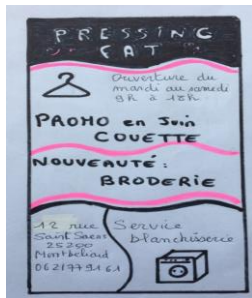 PRESSING
CAT
Ouverture du
mardi au samedi
9h à 18h
PROMO en Juin
COUETTE
NOUVEAUTÉ:
BRODERIE
12 rue
Saint
25200
Montbéliard
Service
blanchisserie